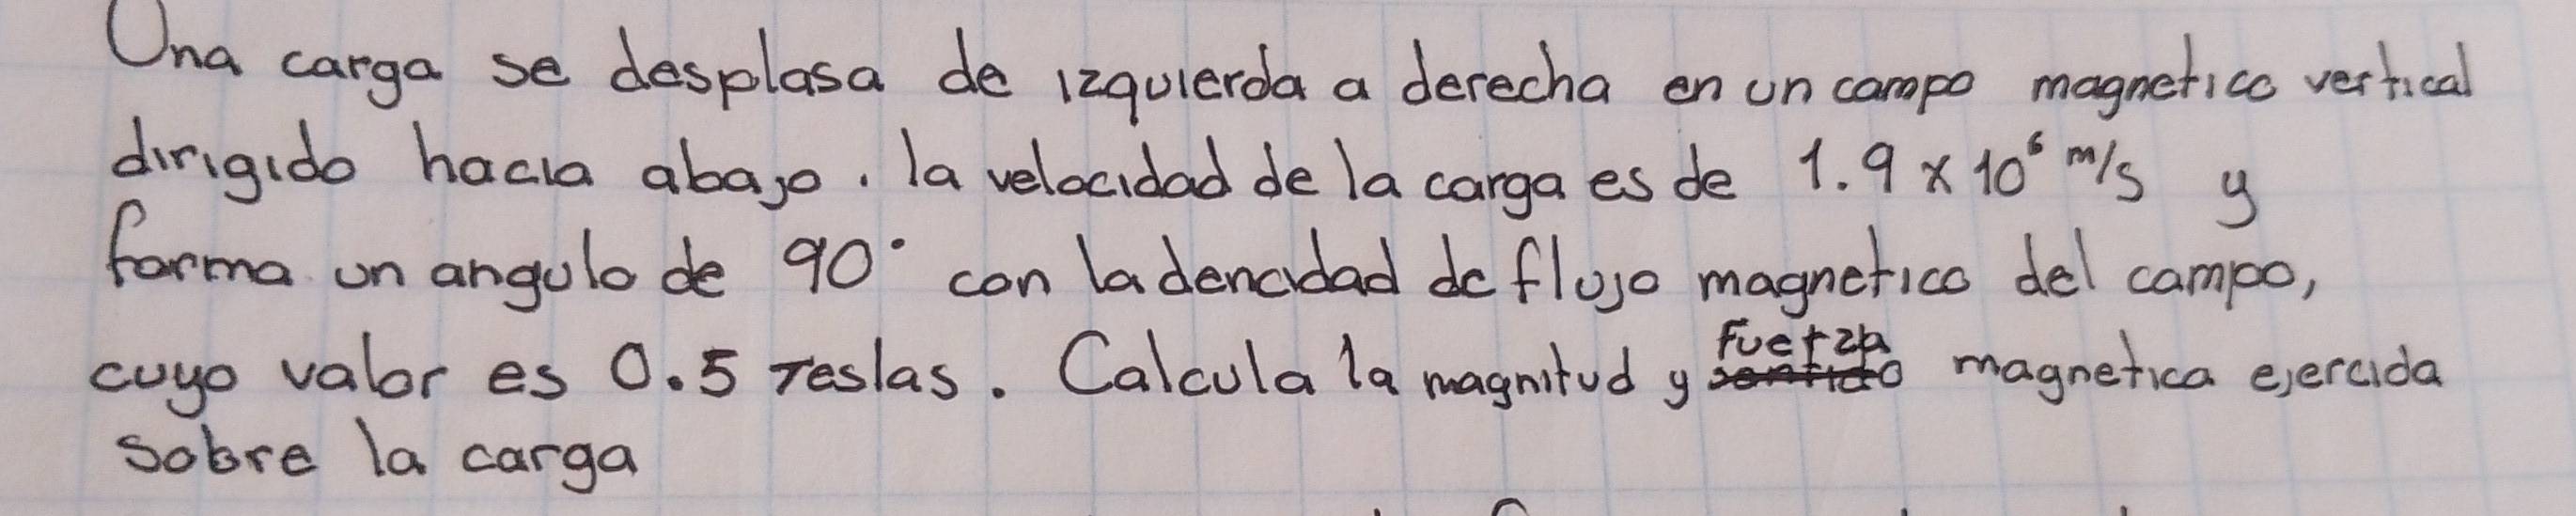 Una carga se desplasa de izquierda a derecha en un campo magnetico vertical
dirigido hacia abajo. la velocidad de la carga es de 1.9 x 10⁶ m/s y
forma un angulo de 90° con la dencidad de flujo magnetico del campo,
cuyo valor es 0.5 Teslas. Calcula la magnitud y Fuerza magnetica ejercida
sobre la carga